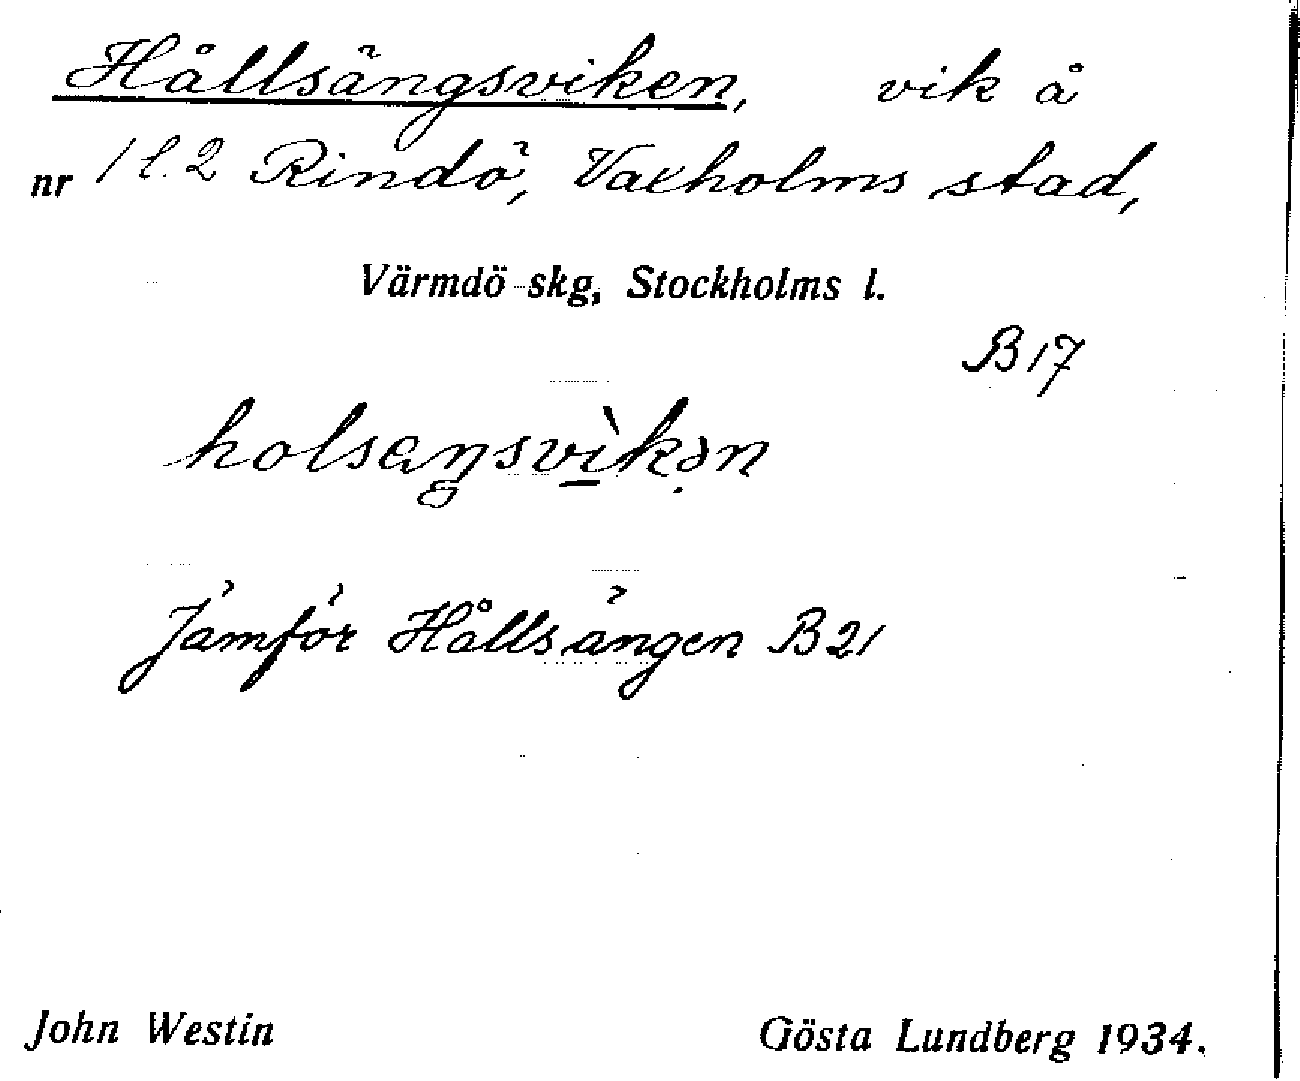 Hållsängsviken, vik å
nr 1 l. 2 Rindö, Vaxholms stad,
Värmdö skg, Stockholms l.
B 17
holsaŋsvìkən
Jämför Hållsängen B 21
John Westin Gösta Lundberg 1934.